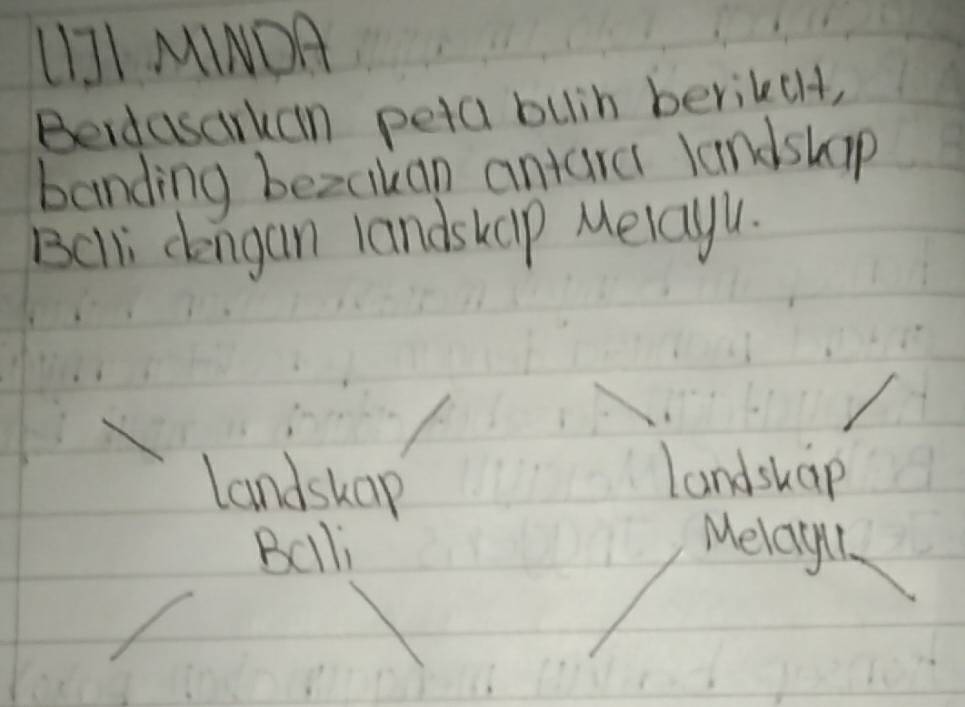 UJI MINDA
Berdasarkan peta buih berikut,
banding bezakan antara landskap
Bali dengan landskap Melayu.
Landskap
Bali
landskap
Melayu